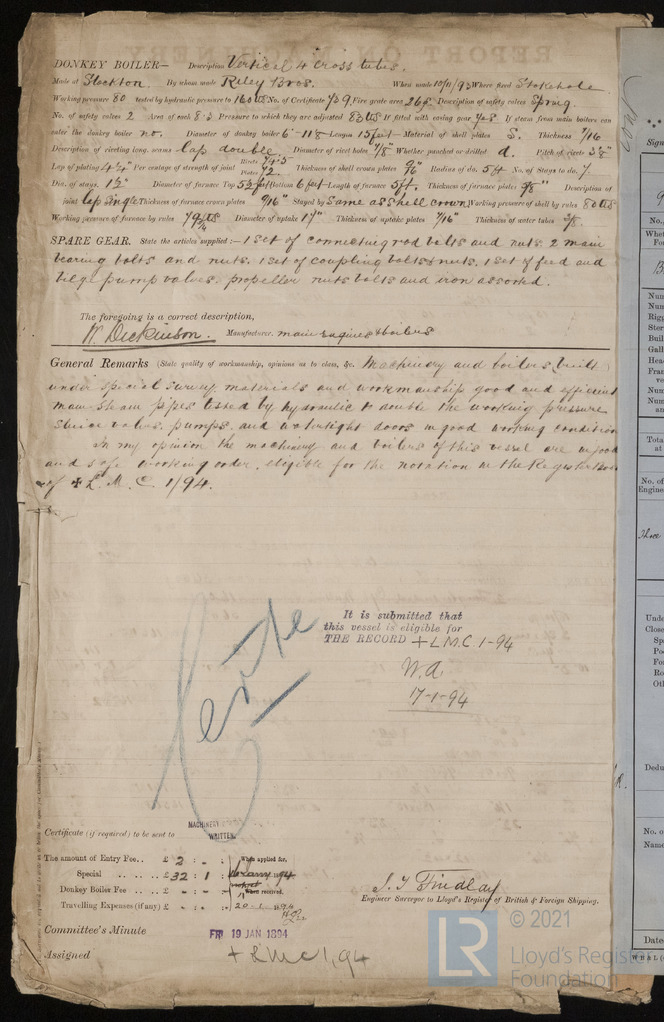 DONKEY BOILER— Description Vertical 4 cross tubes.
Made at Stockton. By whom made Riley Bros. When made 10/11/93 Where fixed Stokehole
Working pressure 80 tested by hydraulic pressure to 160 lbs No. of Certificate 739. Fire grate area 26 f. Description of safety valves Spring.
No. of safety valves 2 Area of each 8.3 Pressure to which they are adjusted 83 lbs If fitted with easing gear yes If steam from main boilers can
enter the donkey boiler no. Diameter of donkey boiler 6-11 8 Length 15 feet Material of shell plates S. Thickness 7/16
Description of riveting long. seams lap double Diameter of rivet holes 7/8" Whether punched or drilled d. Pitch of rivets 3 1/8"
Lap of plating 4 1/4" Per centage of strength of joint Rivets 74.5 Plates 72. Thickness of shell crown plates 9/16" Radius of do. 5 ft No. of Stays to do. 7
Dia. of stays. 1 1/2" Diameter of furnace Top 5 1/2 feet Bottom 6 feet Length of furnace 5 ft. Thickness of furnace plates 9/8" Description of
joint lap single Thickness of furnace crown plates 9/16" Stayed by Same as shell crown Working pressure of shell by rules 80 lbs
Working pressure of furnace by rules 79 lbs Diameter of uptake 17" Thickness of uptake plates 7/16" Thickness of water tubes 3/8.
SPARE GEAR. State the articles supplied:— 1 set of connecting rod bolts and nuts. 2 main
bearing bolts and nuts. 1 set of coupling bolts & nuts. 1 set of feed and
bilge pump valves. propeller nuts bolts and iron assorted.
The foregoing is a correct description,
W. Dickinson. Manufacturer. main engines & boilers
General Remarks (State quality of workmanship, opinions as to class, &c. Machinery and boilers built
under special survey, materials and workmanship good and efficient
main steam pipes tested by hydraulic to double the working pressure
Sluice valves. pumps. and watertight doors in good working condition
In my opinion the machinery and boilers of this vessel are in good
and safe working order, eligible for the notation in the Register Book
of + L. M. C. 1/94.
It is submitted that
this vessel is eligible for
THE RECORD + L.M.C 1-94
W.A.
17-1-94
MACHINERY
WRITTEN.
Certificate (if required) to be sent to
The amount of Entry Fee.. £ 2 : - : When applied for,
Special .. .. .. £ 32 : 1 :
Donkey Boiler Fee .. .. £ - : - : When received.
Travelling Expenses (if any) £ - : - : 20-1-94
J. T. Findlay
Engineer Surveyor to Lloyd's Register of British & Foreign Shipping.
Committee's Minute FRI 19 JAN 1894
Assigned + LMC 1,94
LR © 2021
Lloyd's Register
Foundation